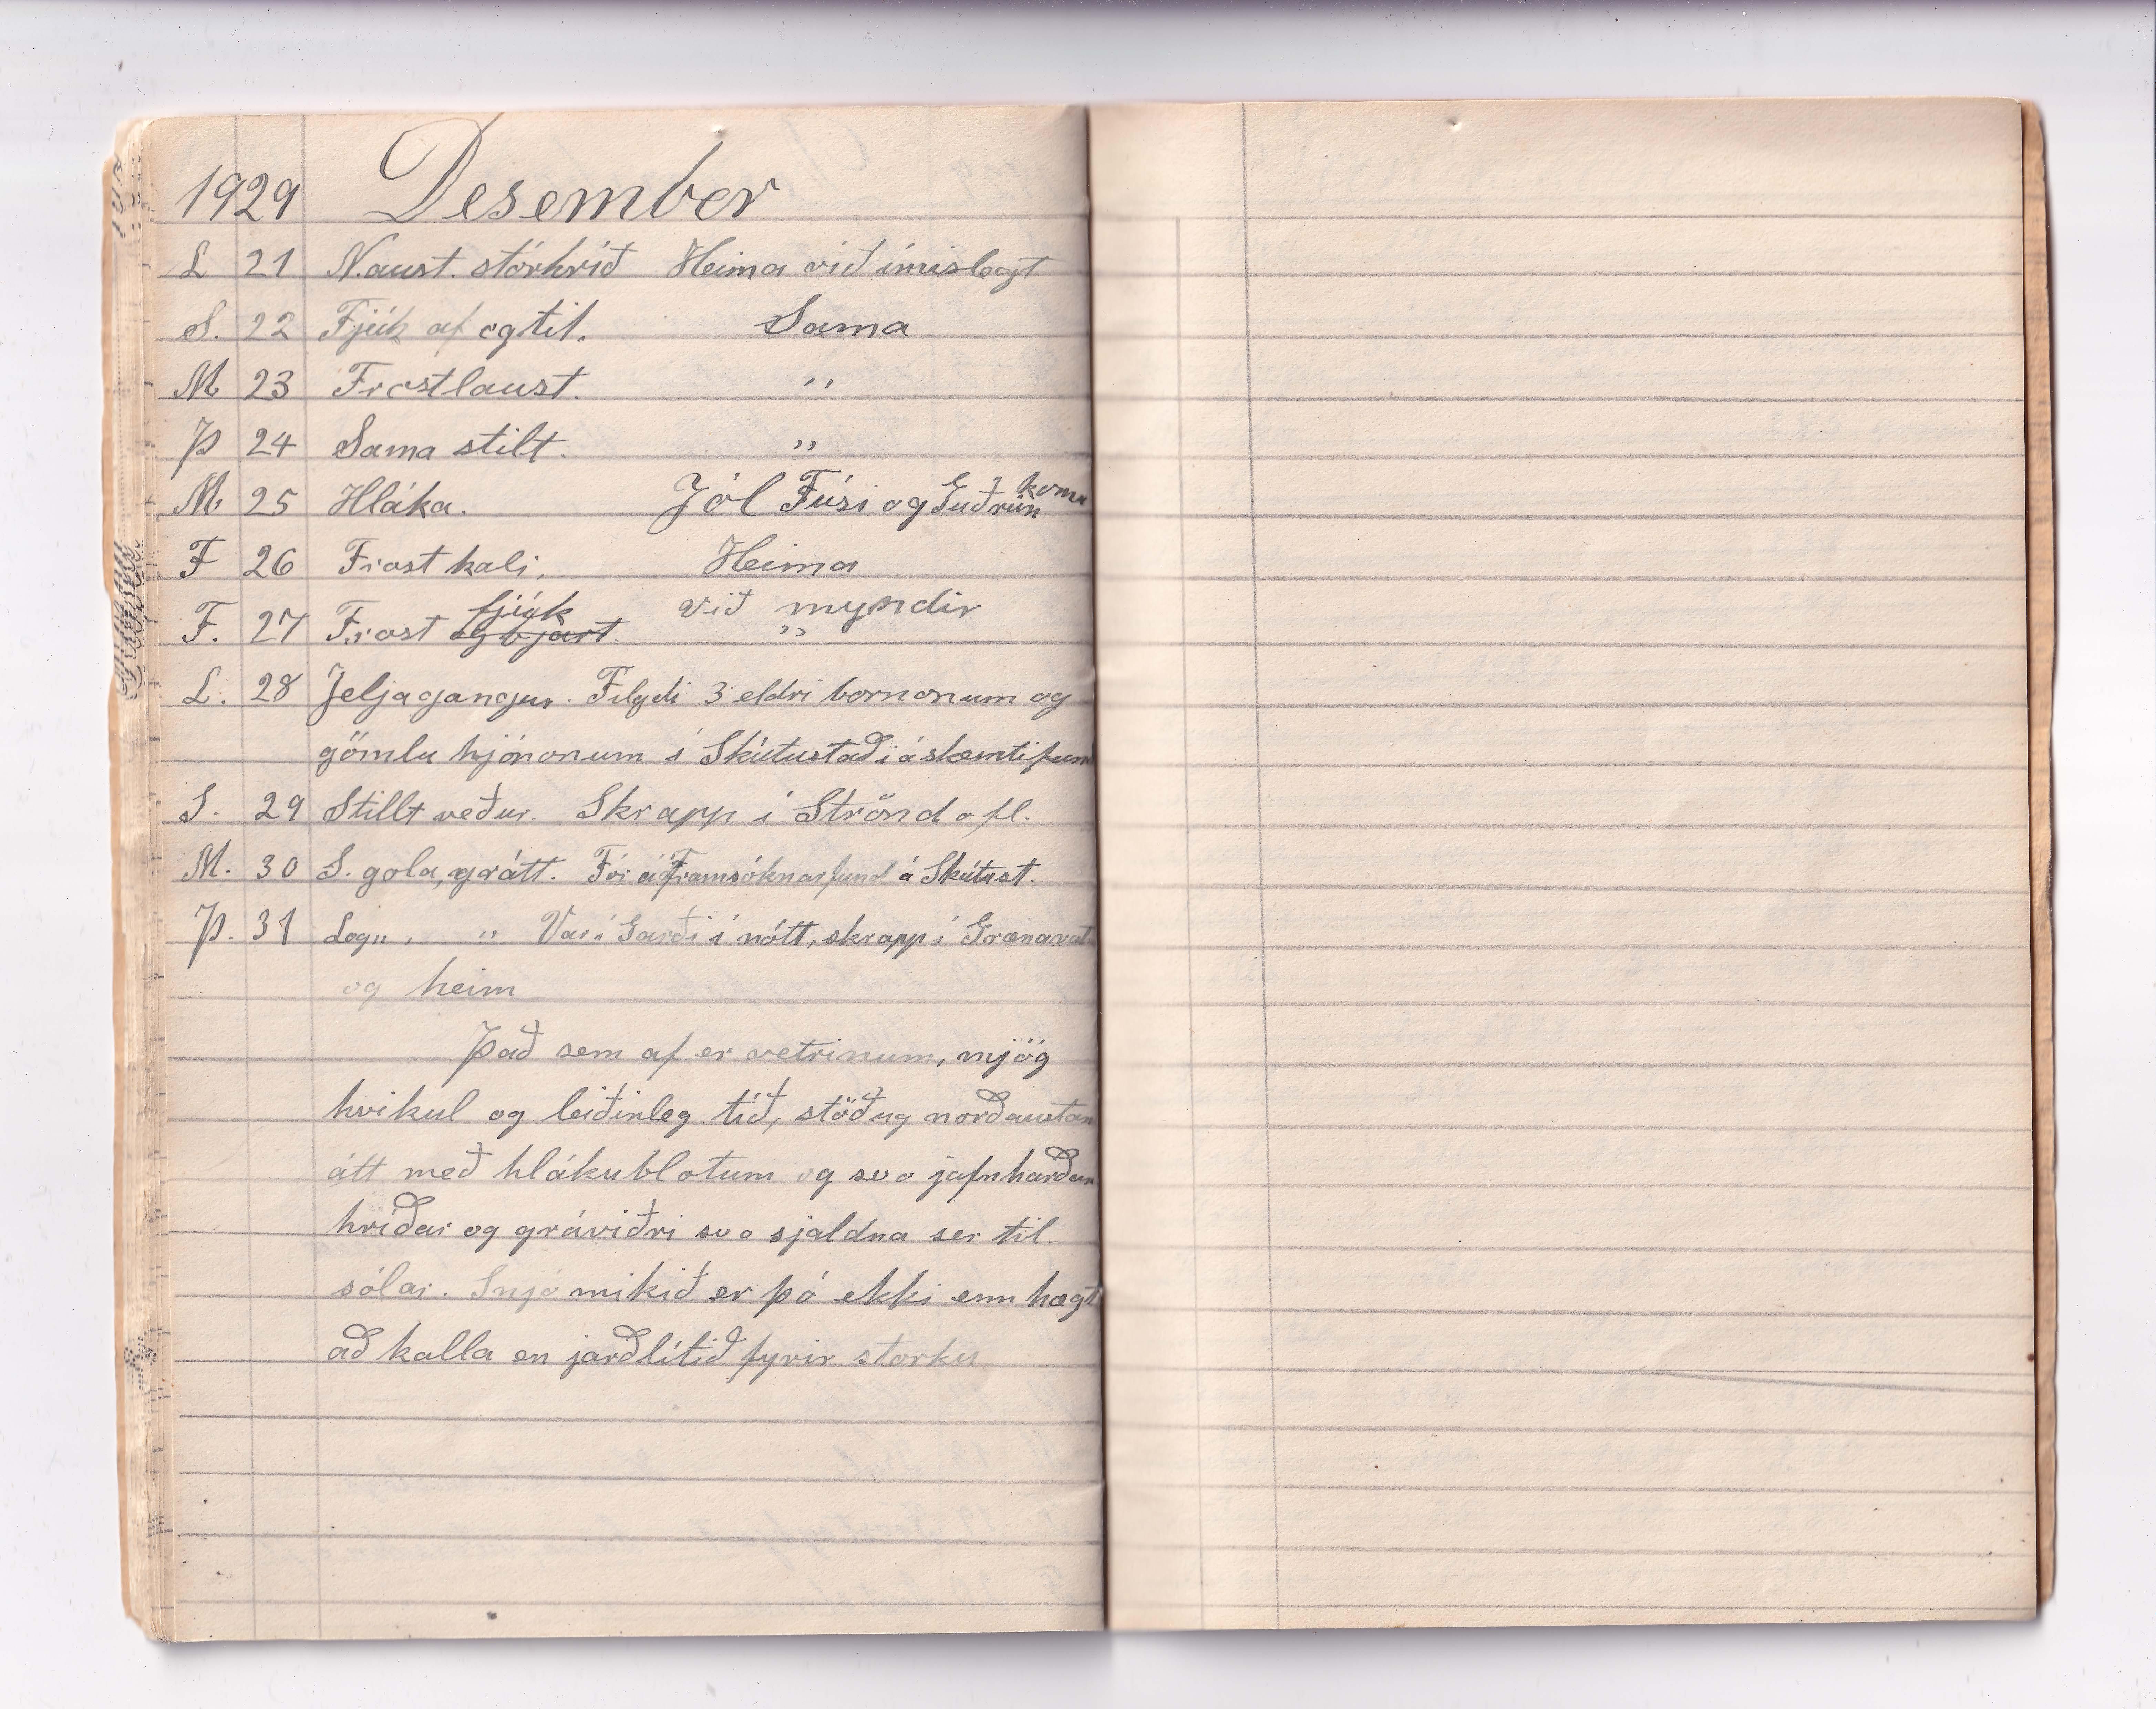 1929 Desember
L 21 N.aust. stórhríð Heima við ímislegt
S. 22 Fjúk af og til. Sama
M 23 Frostlaust. "
Þ 24 Sama stilt. "
M 25 Hláka. Jól Fúsi og Guðrún koma
F 26 Frost kali. Heima
F. 27 Frost og bjart. fjúk við myndir "
L. 28 Jeljagangur. Filgdi 3 eldri bornonum og
gömlu hjónonum í Skútustaði á skemtifun
S. 29 Stillt veður. Skrapp í Strönd ofl.
M. 30 S. gola, grátt. Fór á Framsóknarfund á Skútust.
Þ. 31 Logn, " Var í Garði í nótt, skrapp í Grænavat
og heim
Það sem af er vetrinum, mjög
hvikul og leiðinleg tíð, stöðug norðaustan
átt með hlákublotum og svo jafnharðan
hríðar og gráviðri svo sjaldna ser til
sólar. Snjó mikið er þó ekki enn hægt
að kalla en jarðlítið fyrir storku